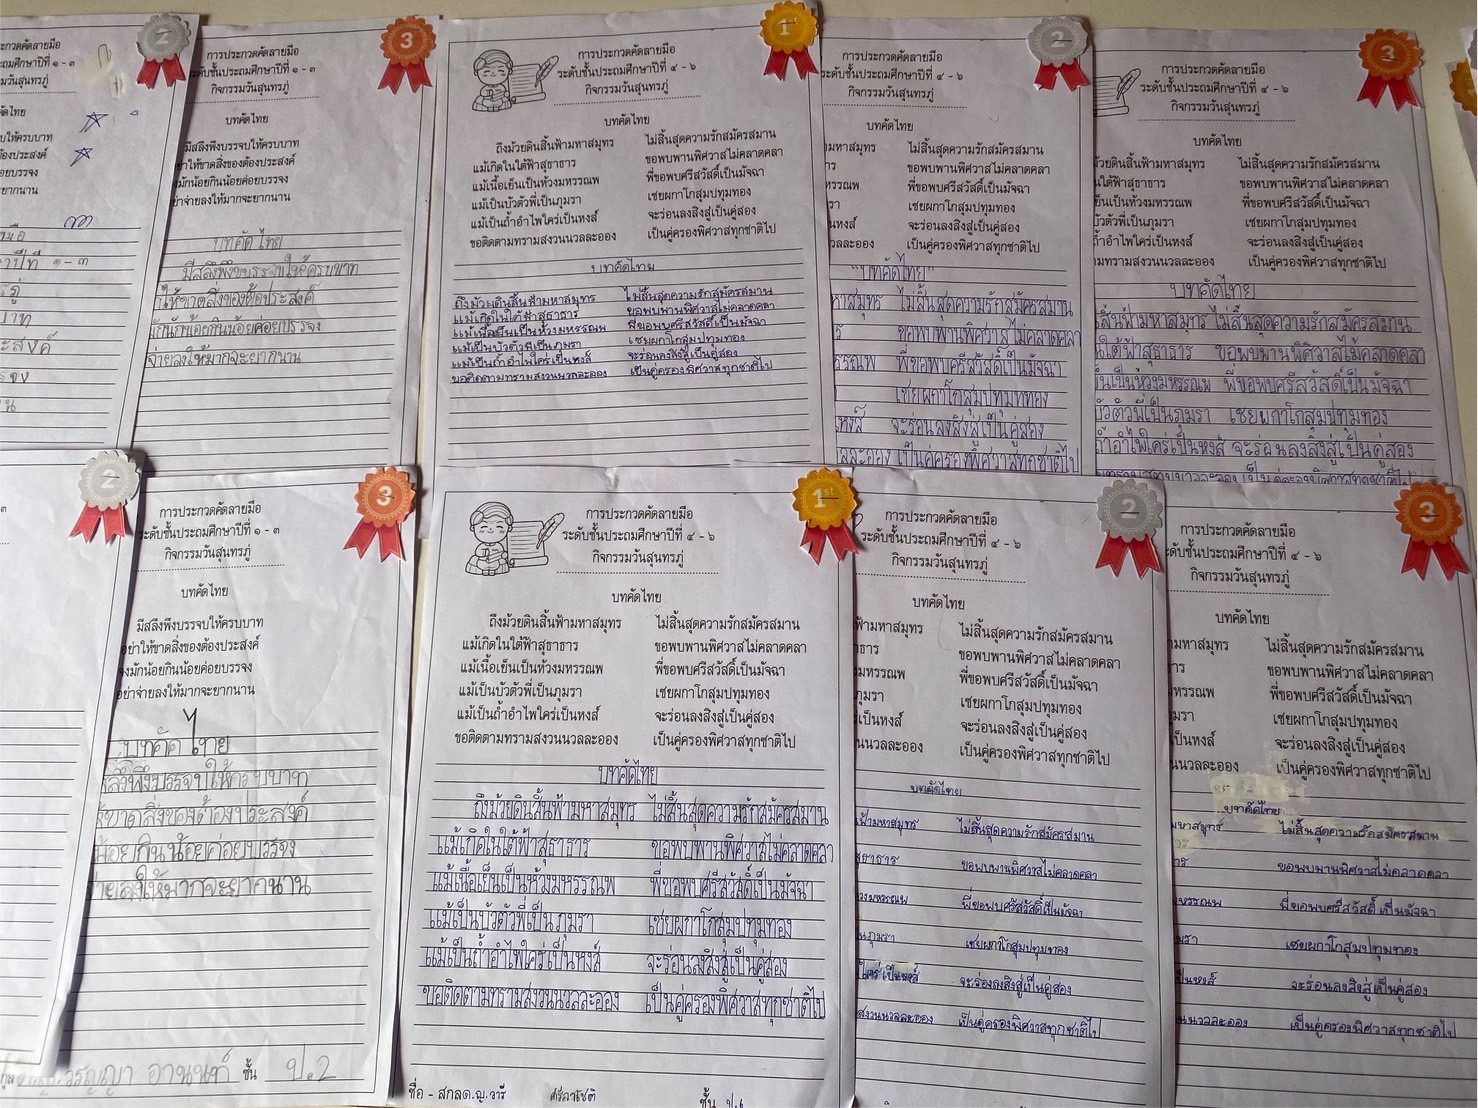 2
ระกวดคัดลายมือ
ถมศึกษาปีที่ ๑ - ๓
มวันสุนทรภู่
ัดไทย
บให้ครบบาท
้องประสงค์
่อยบรรจง
ะยากนาน
3
การประกวดคัดลายมือ
ระดับชั้นประถมศึกษาปีที่ ๑ - ๓
กิจกรรมวันสุนทรภู่
บทคัดไทย
มีสลึงพึงบรรจบให้ครบบาท
ย่าให้ขาดสิ่งของต้องประสงค์
งมักน้อยกินน้อยค่อยบรรจง
ย่าจ่ายลงให้มากจะยากนาน
บทคัดไทย
มีสลึงพึงบรรจบให้ครบบาท
าให้ขาดสิ่งของต้อประสงค์
น้อยกินน้อยค่อยบรรจง
จ่ายลงให้มากจะยากนาน
1st
การประกวดคัดลายมือ
ระดับชั้นประถมศึกษาปีที่ ๔ - ๖
กิจกรรมวันสุนทรภู่
บทคัดไทย
ถึงม้วยดินสิ้นฟ้ามหาสมุทร ไม่สิ้นสุดความรักสมัครสมาน
แม้เกิดในใต้ฟ้าสุธาธาร ขอพบพานพิศวาสไม่คลาดคลา
แม้เนื้อเย็นเป็นห้วงมหรรณพ พี่ขอพบศรีสวัสดิ์เป็นมัจฉา
แม้เป็นบัวตัวพี่เป็นภุมรา เชยผกาโกสุมปทุมทอง
แม้เป็นถ้ำอำไพใคร่เป็นหงส์ จะร่อนลงสิงสู่เป็นคู่สอง
ขอติดตามทรามสงวนนวลละออง เป็นคู่ครองพิศวาสทุกชาติไป
บทคัดไทย
ถึงม้วยดินสิ้นฟ้ามหาสมุทร ไม่สิ้นสุดความรักสมัครสมาน
แม้เกิดในใต้ฟ้าสุธาธาร ขอพบพานพิศวาสไม่คลาดคลา
แม้เนื้อเย็นเป็นห้วงมหรรณพ พี่ขอพบศรีสวัสดิ์เป็นมัจฉา
แม้เป็นบัวตัวพี่เป็นภุมรา เชยผกาโกสุมปทุมทอง
แม้เป็นถ้ำอำไพใคร่เป็นหงส์ จะร่อนลงสิงสู่เป็นคู่สอง
ขอติดตามทรามสงวนนวลละออง เป็นคู่ครองพิศวาสทุกชาติไป
2
การประกวดคัดลายมือ
ะดับชั้นประถมศึกษาปีที่ ๔ - ๖
กิจกรรมวันสุนทรภู่
บทคัดไทย
ามหาสมุทร ไม่สิ้นสุดความรักสมัครสมาน
าร ขอพบพานพิศวาสไม่คลาดคลา
งมหรรณพ พี่ขอพบศรีสวัสดิ์เป็นมัจฉา
มรา เชยผกาโกสุมปทุมทอง
็นหงส์ จะร่อนลงสิงสู่เป็นคู่สอง
นวลละออง เป็นคู่ครองพิศวาสทุกชาติไป
"บทคัดไทย"
หาสมุทร ไม่สิ้นสุดความรักสมัครสมาน
ขอพบพานพิศวาสไม่คลาดคลา
รรณพ พี่ขอพบศรีสวัสดิ์เป็นมัจฉา
เชยผกาโกสุมปทุมททอง
หงส์ จะร่อนลงสิงสู่เป็นคู่สอง
วลละออง เป็นคู่ครองพิศวาสทุกชาติไป
3
การประกวดคัดลายมือ
ระดับชั้นประถมศึกษาปีที่ ๔ - ๖
กิจกรรมวันสุนทรภู่
บทคัดไทย
้วยดินสิ้นฟ้ามหาสมุทร ไม่สิ้นสุดความรักสมัครสมาน
ในใต้ฟ้าสุธาธาร ขอพบพานพิศวาสไม่คลาดคลา
ย็นเป็นห้วงมหรรณพ พี่ขอพบศรีสวัสดิ์เป็นมัจฉา
บัวตัวพี่เป็นภุมรา เชยผกาโกสุมปทุมทอง
ถ้ำอำไพใคร่เป็นหงส์ จะร่อนลงสิงสู่เป็นคู่สอง
ามทรามสงวนนวลละออง เป็นคู่ครองพิศวาสทุกชาติไป
บทคัดไทย
สิ้นฟ้ามหาสมุทร ไม่สิ้นสุดความรักสมัครสมาน
นใต้ฟ้าสุธาธาร ขอพบพานพิศวาสไม้คลาดคลา
็นเป็นห้วงมหรรณพ พี่ขอพบศรีสวัสดิ์เป็นมัจฉา
บัวตัวพี่เป็นภุมรา เชยผกาโกสุมปทุมทอง
ถ้ำอำไพใคร่เป็นหงส์ จะร่อนลงสิงสู่เป็นคู่สอง
2
3
การประกวดคัดลายมือ
ะดับชั้นประถมศึกษาปีที่ ๑ - ๓
กิจกรรมวันสุนทรภู่
บทคัดไทย
มีสลึงพึงบรรจบให้ครบบาท
อย่าให้ขาดสิ่งของต้องประสงค์
จงมักน้อยกินน้อยค่อยบรรจง
อย่าจ่ายลงให้มากจะยากนาน
บทคัดไทย
สลึงพึงบรรจบให้ครบบาท
ห้ขาดสิ่งของต้องประสงค์
น้อยกินน้อยค่อยบรรจง
่ายลงให้มากจะยากนาน
อานนท์ ชั้น ป.2
1st
การประกวดคัดลายมือ
ระดับชั้นประถมศึกษาปีที่ ๔ - ๖
กิจกรรมวันสุนทรภู่
บทคัดไทย
ถึงม้วยดินสิ้นฟ้ามหาสมุทร ไม่สิ้นสุดความรักสมัครสมาน
แม้เกิดในใต้ฟ้าสุธาธาร ขอพบพานพิศวาสไม่คลาดคลา
แม้เนื้อเย็นเป็นห้วงมหรรณพ พี่ขอพบศรีสวัสดิ์เป็นมัจฉา
แม้เป็นบัวตัวพี่เป็นภุมรา เชยผกาโกสุมปทุมทอง
แม้เป็นถ้ำอำไพใคร่เป็นหงส์ จะร่อนลงสิงสู่เป็นคู่สอง
ขอติดตามทรามสงวนนวลละออง เป็นคู่ครองพิศวาสทุกชาติไป
บทคัดไทย
ถึงม้วยดินสิ้นฟ้ามหาสมุทร ไม่สิ้นสุดความรักสมัครสมาน
แม้เกิดในใต้ฟ้าสุธาธาร ขอพบพานพิศวาสไม่คลาดคลา
แม้เนื้อเย็นเป็นห้วงมหรรณพ พี่ขอพบศรีสวัสดิ์เป็นมัจฉา
แม้เป็นบัวตัวพี่เป็นภุมรา เชยผกาโกสุมปทุมทอง
แม้เป็นถ้ำอำไพใคร่เป็นหงส์ จะร่อนลงสิงสู่เป็นคู่สอง
ขอติดตามทรามสงวนนวลละออง เป็นคู่ครองพิศวาสทุกชาติไป
ชื่อ - สกุล ด.ญ.วารี ชั้น ป.6
2
การประกวดคัดลายมือ
ะดับชั้นประถมศึกษาปีที่ ๔ - ๖
กิจกรรมวันสุนทรภู่
บทคัดไทย
ฟ้ามหาสมุทร ไม่สิ้นสุดความรักสมัครสมาน
ธาร ขอพบพานพิศวาสไม่คลาดคลา
วงมหรรณพ พี่ขอพบศรีสวัสดิ์เป็นมัจฉา
ภุมรา เชยผกาโกสุมปทุมทอง
่เป็นหงส์ จะร่อนลงสิงสู่เป็นคู่สอง
นนวลละออง เป็นคู่ครองพิศวาสทุกชาติไป
บทคัดไทย
ฟ้ามหาสมุทร ไม่สิ้นสุดความรักสมัครสมาน
สุธาธาร ขอพบพานพิศวาสไม่คลาดคลา
วงมหรรณพ พี่ขอพบศรีสวัสดิ์เป็นมัจฉา
นภุมรา เชยผกาโกสุมปทุมทอง
ใคร่เป็นหงส์ จะร่อนลงสิงสู่เป็นคู่สอง
สงวนนวลละออง เป็นคู่ครองพิศวาสทุกชาติไป
3
การประกวดคัดลายมือ
ะดับชั้นประถมศึกษาปีที่ ๔ - ๖
กิจกรรมวันสุนทรภู่
บทคัดไทย
ามหาสมุทร ไม่สิ้นสุดความรักสมัครสมาน
าร ขอพบพานพิศวาสไม่คลาดคลา
มหรรณพ พี่ขอพบศรีสวัสดิ์เป็นมัจฉา
มรา เชยผกาโกสุมปทุมทอง
เป็นหงส์ จะร่อนลงสิงสู่เป็นคู่สอง
นนวลละออง เป็นคู่ครองพิศวาสทุกชาติไป
บทคัดไทย
มหาสมุทร ไม่สิ้นสุดความรักสมัครสมาน
าร ขอพบพานพิศวาสไม่คลาดคลา
หรรณพ พี่ขอพบศรีสวัสดิ์เป็นมัจฉา
มรา เชยผกาโกสุมปทุมทอง
ป็นหงส์ จะร่อนลงสิงสู่เป็นคู่สอง
นนวลละออง เป็นคู่ครองพิศวาสทุกชาติไป